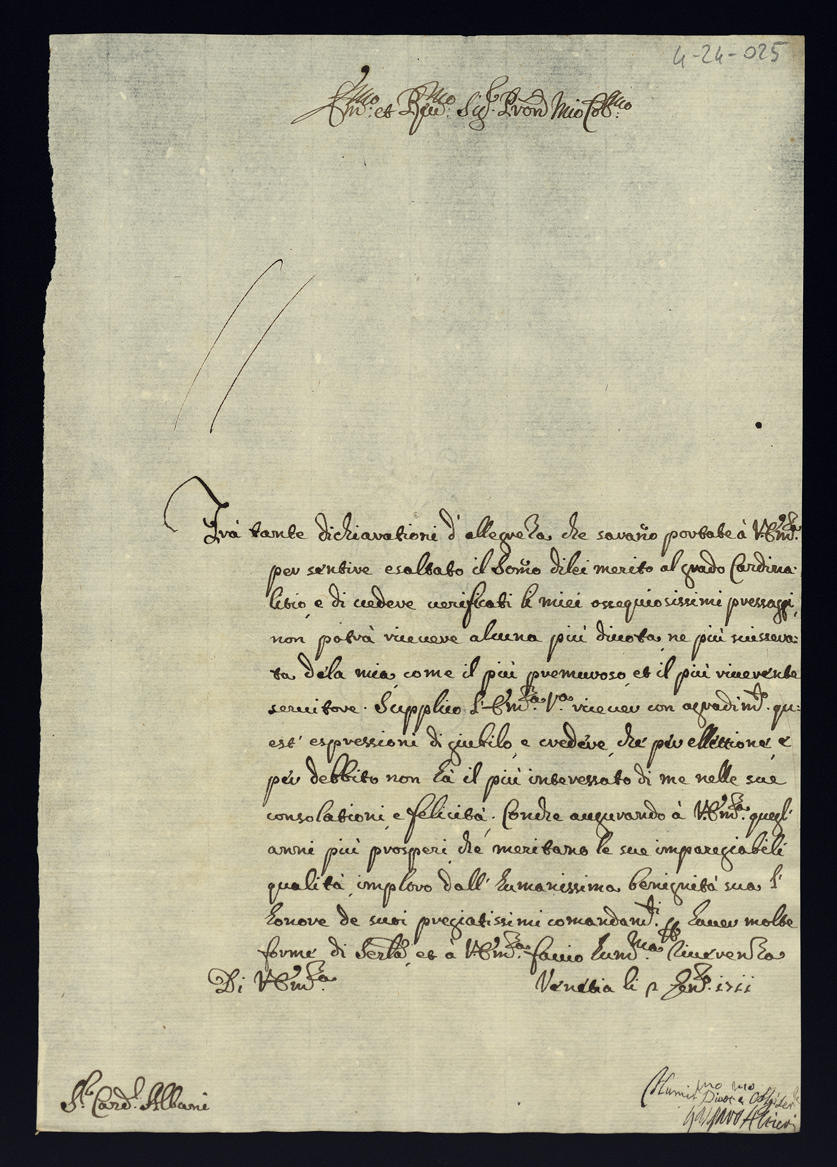 4-24-025
Em.mo et Rev.mo Sig.r Pron Mio Col.mo
Trà tante dichiarationi d'allegrezza che sarano portate à V.Em.za
per sentire esaltato il Somo di lei merito al grado Cardina:
litio, e di vedere verificati li miei ossequiosissimi pressaggi,
non potrà ricevere alcuna più divota, ne più svissera:
ta dela mia, come il più premuroso, et il più riverente
servitore. Supplico L'Em.za V.a ricever con agradim.to qu:
est' espressioni di giubilo, e credere, che per ellettione, e
per debbito non hà il più interessato di me nelle sue
consolationi, e felicità. Con che augurando à V.Em.za quegl'
anni più prosperi, che meritano le sue imparegiabili
qualità, imploro dall' humanissima benignità sua l'
honore de suoi pregiatissimi comandam.ti haver molte
forme di Ser.la, et à V.Em.za faccio hum.ma Riverenza
Di V.Em.za Venetia li 2 Gen.o 1711
S.r Card.l Albani
Humil.mo Divot.mo Oss.
Altieri